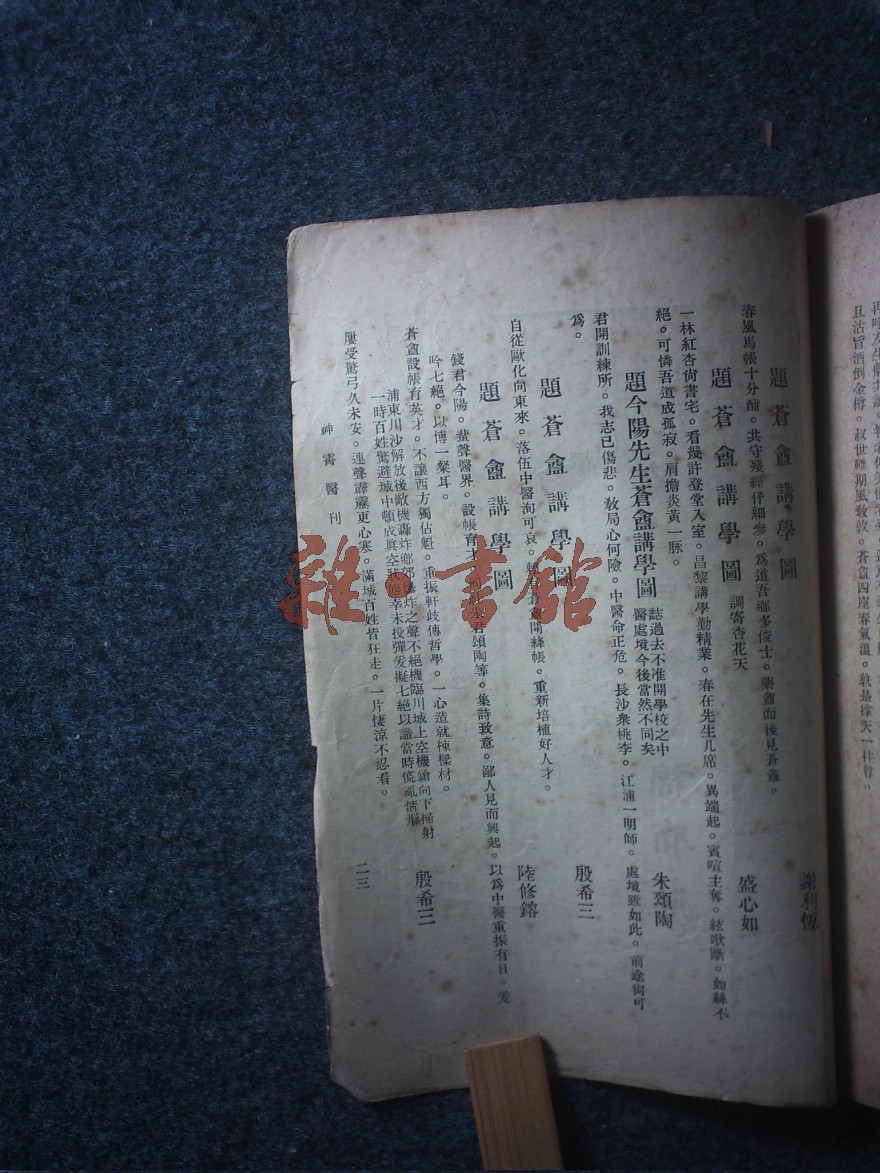 題蒼盦講學圖
謝利恆
春風馬帳十分酣。共守殘經仔細參。爲道吾鄉多俊士。藥盦而後見蒼盦。
題蒼盦講學圖 調寄杏花天
盛心如
一林紅杏尙書宅。看幾許登堂入室。昌黎講學勤精業。春在先生几席。異端起。賓喧主奪。絃歌斷。如絲不
絕。可憐吾道成孤寂。肩擔炎黃一脈。
題今陽先生蒼盦講學圖 誌過去不准開學校之中醫處境今後當然不同矣
朱頌陶
君開訓練所。我志已傷悲。敎局心何險。中醫命正危。長沙衆桃李。江浦一明師。處境雖如此。前途尙可
爲。
題蒼盦講學圖
殷希三
自從歐化向東來。落伍中醫洵可哀。開絳帳。重新培植好人才。
題蒼盦講學圖
陸修鎔
錢君今陽。蜚聲醫界。設帳育才君頌陶等。集詩致意。鄙人見而興起。以爲中醫重振有日。爰
吟七絕。以博一粲耳。
蒼盦設帳育英才。不讓西方獨佔魁。重振軒歧傳哲學。一心造就棟樑材。
浦東川沙解放後敵機轟炸鄉郊爆炸之聲不絕機臨川城上空機鎗向下掃射
一時百姓驚避城中頓成真空狀態幸未投彈爰擬七絕以識當時慌亂情形
殷希三
屢受驚弓久未安。連聲霹靂更心寒。滿城百姓皆狂走。一片悽涼不忍看。
神霄醫刊
二三
雜·書館